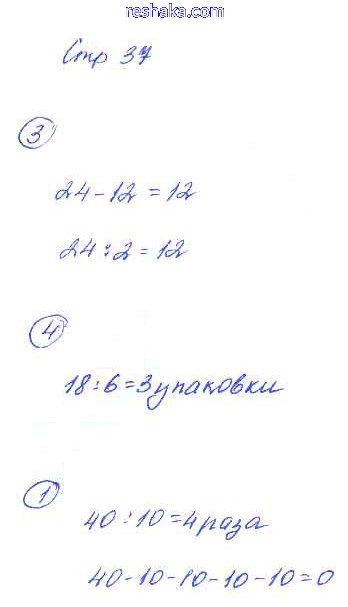 reshaka.com
Стр 37
3
24-12=12
24:2=12
4
18:6=3упаковки
1
40:10=4раза
40-10-10-10-10=0